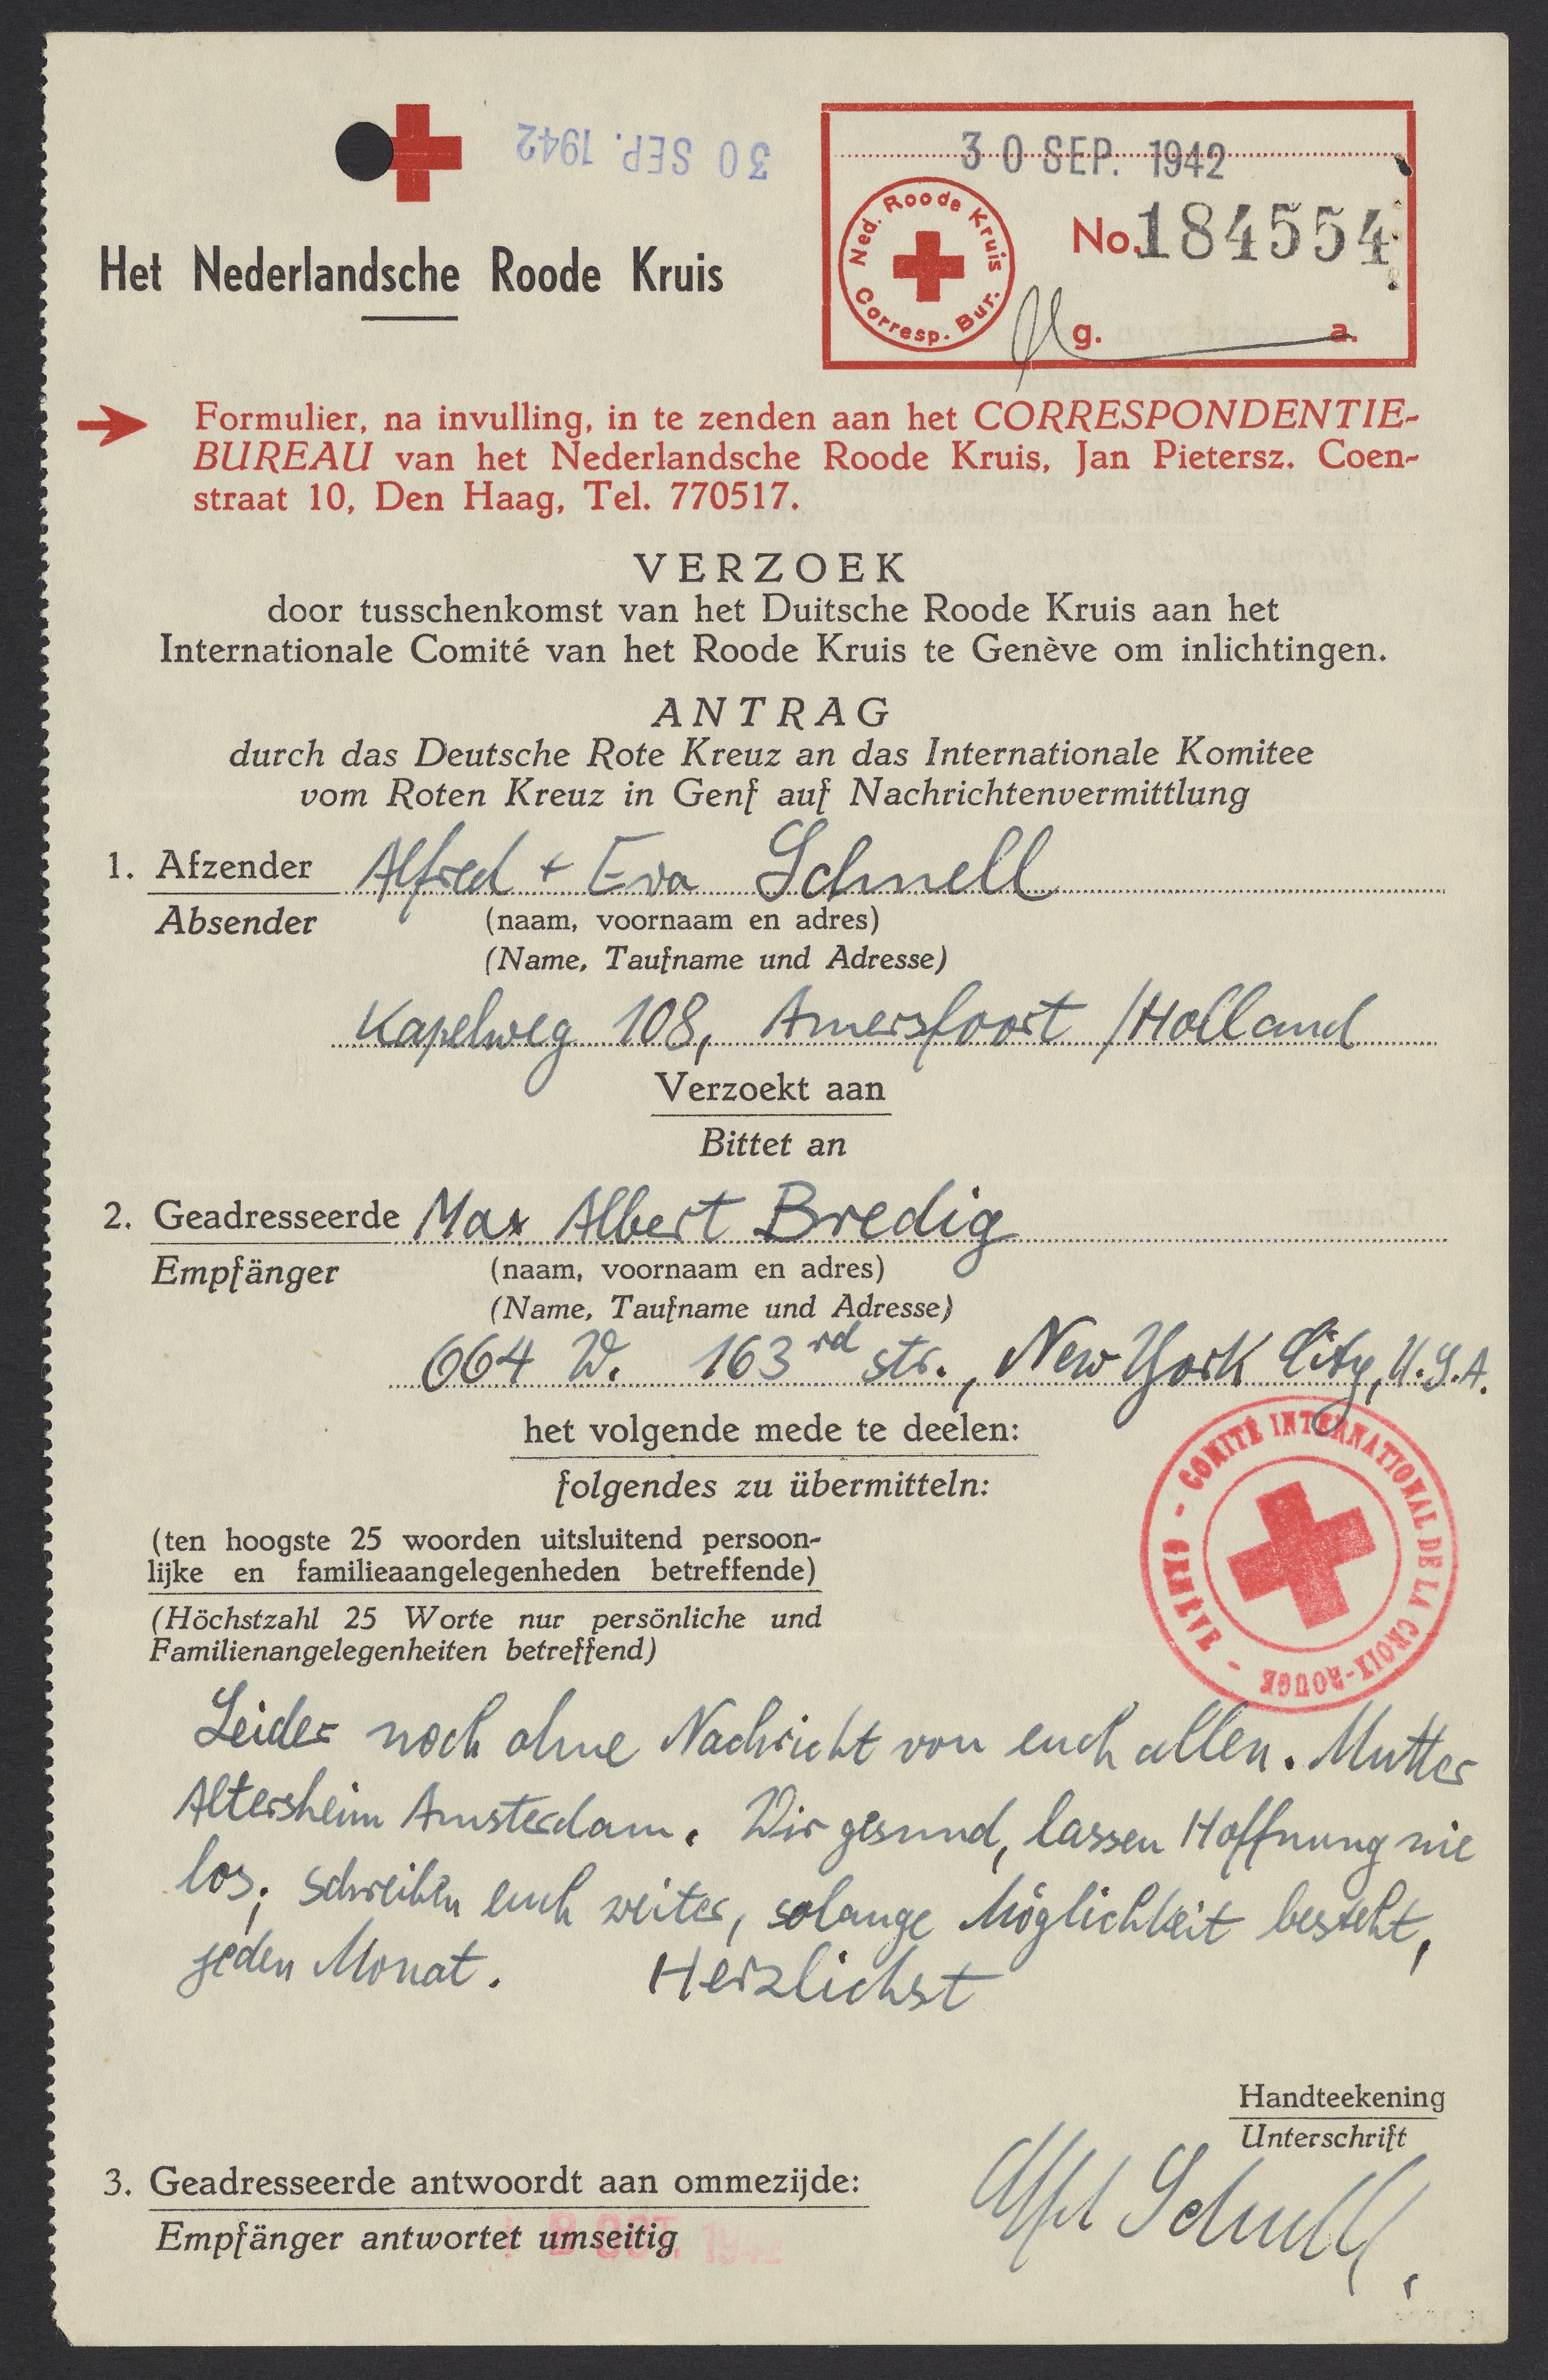 30 SEP. 1942
30 SEP. 1942
Ned. Roode Kruis
Corresp. Bur.
No. 184554
g. a.
Het Nederlandsche Roode Kruis
Formulier, na invulling, in te zenden aan het CORRESPONDENTIE-
BUREAU van het Nederlandsche Roode Kruis, Jan Pietersz. Coen-
straat 10, Den Haag, Tel. 770517.
VERZOEK
door tusschenkomst van het Duitsche Roode Kruis aan het
Internationale Comité van het Roode Kruis te Genève om inlichtingen.
ANTRAG
durch das Deutsche Rote Kreuz an das Internationale Komitee
vom Roten Kreuz in Genf auf Nachrichtenvermittlung
1. Afzender Alfred + Eva Schnell
Absender (naam, voornaam en adres)
(Name, Taufname und Adresse)
Kapelweg 108, Amersfoort /Holland
Verzoekt aan
Bittet an
2. Geadresseerde Max Albert Bredig
Empfänger (naam, voornaam en adres)
(Name, Taufname und Adresse)
664 W. 163rd str., New York City, U.S.A.
het volgende mede te deelen:
folgendes zu übermitteln:
COMITÉ INTERNATIONAL DE LA CROIX-ROUGE - GENÈVE -
(ten hoogste 25 woorden uitsluitend persoon-
lijke en familieaangelegenheden betreffende)
(Höchstzahl 25 Worte nur persönliche und
Familienangelegenheiten betreffend)
Leider noch ohne Nachricht von euch allen. Mutter
Altersheim Amsterdam. Wir gesund, lassen Hoffnung nie
los; schreiben euch weiter, solange Möglichkeit besteht,
jeden Monat. Herzlichst
Handteekening
Unterschrift
Alfred Schnell.
3. Geadresseerde antwoordt aan ommezijde:
Empfänger antwortet umseitig